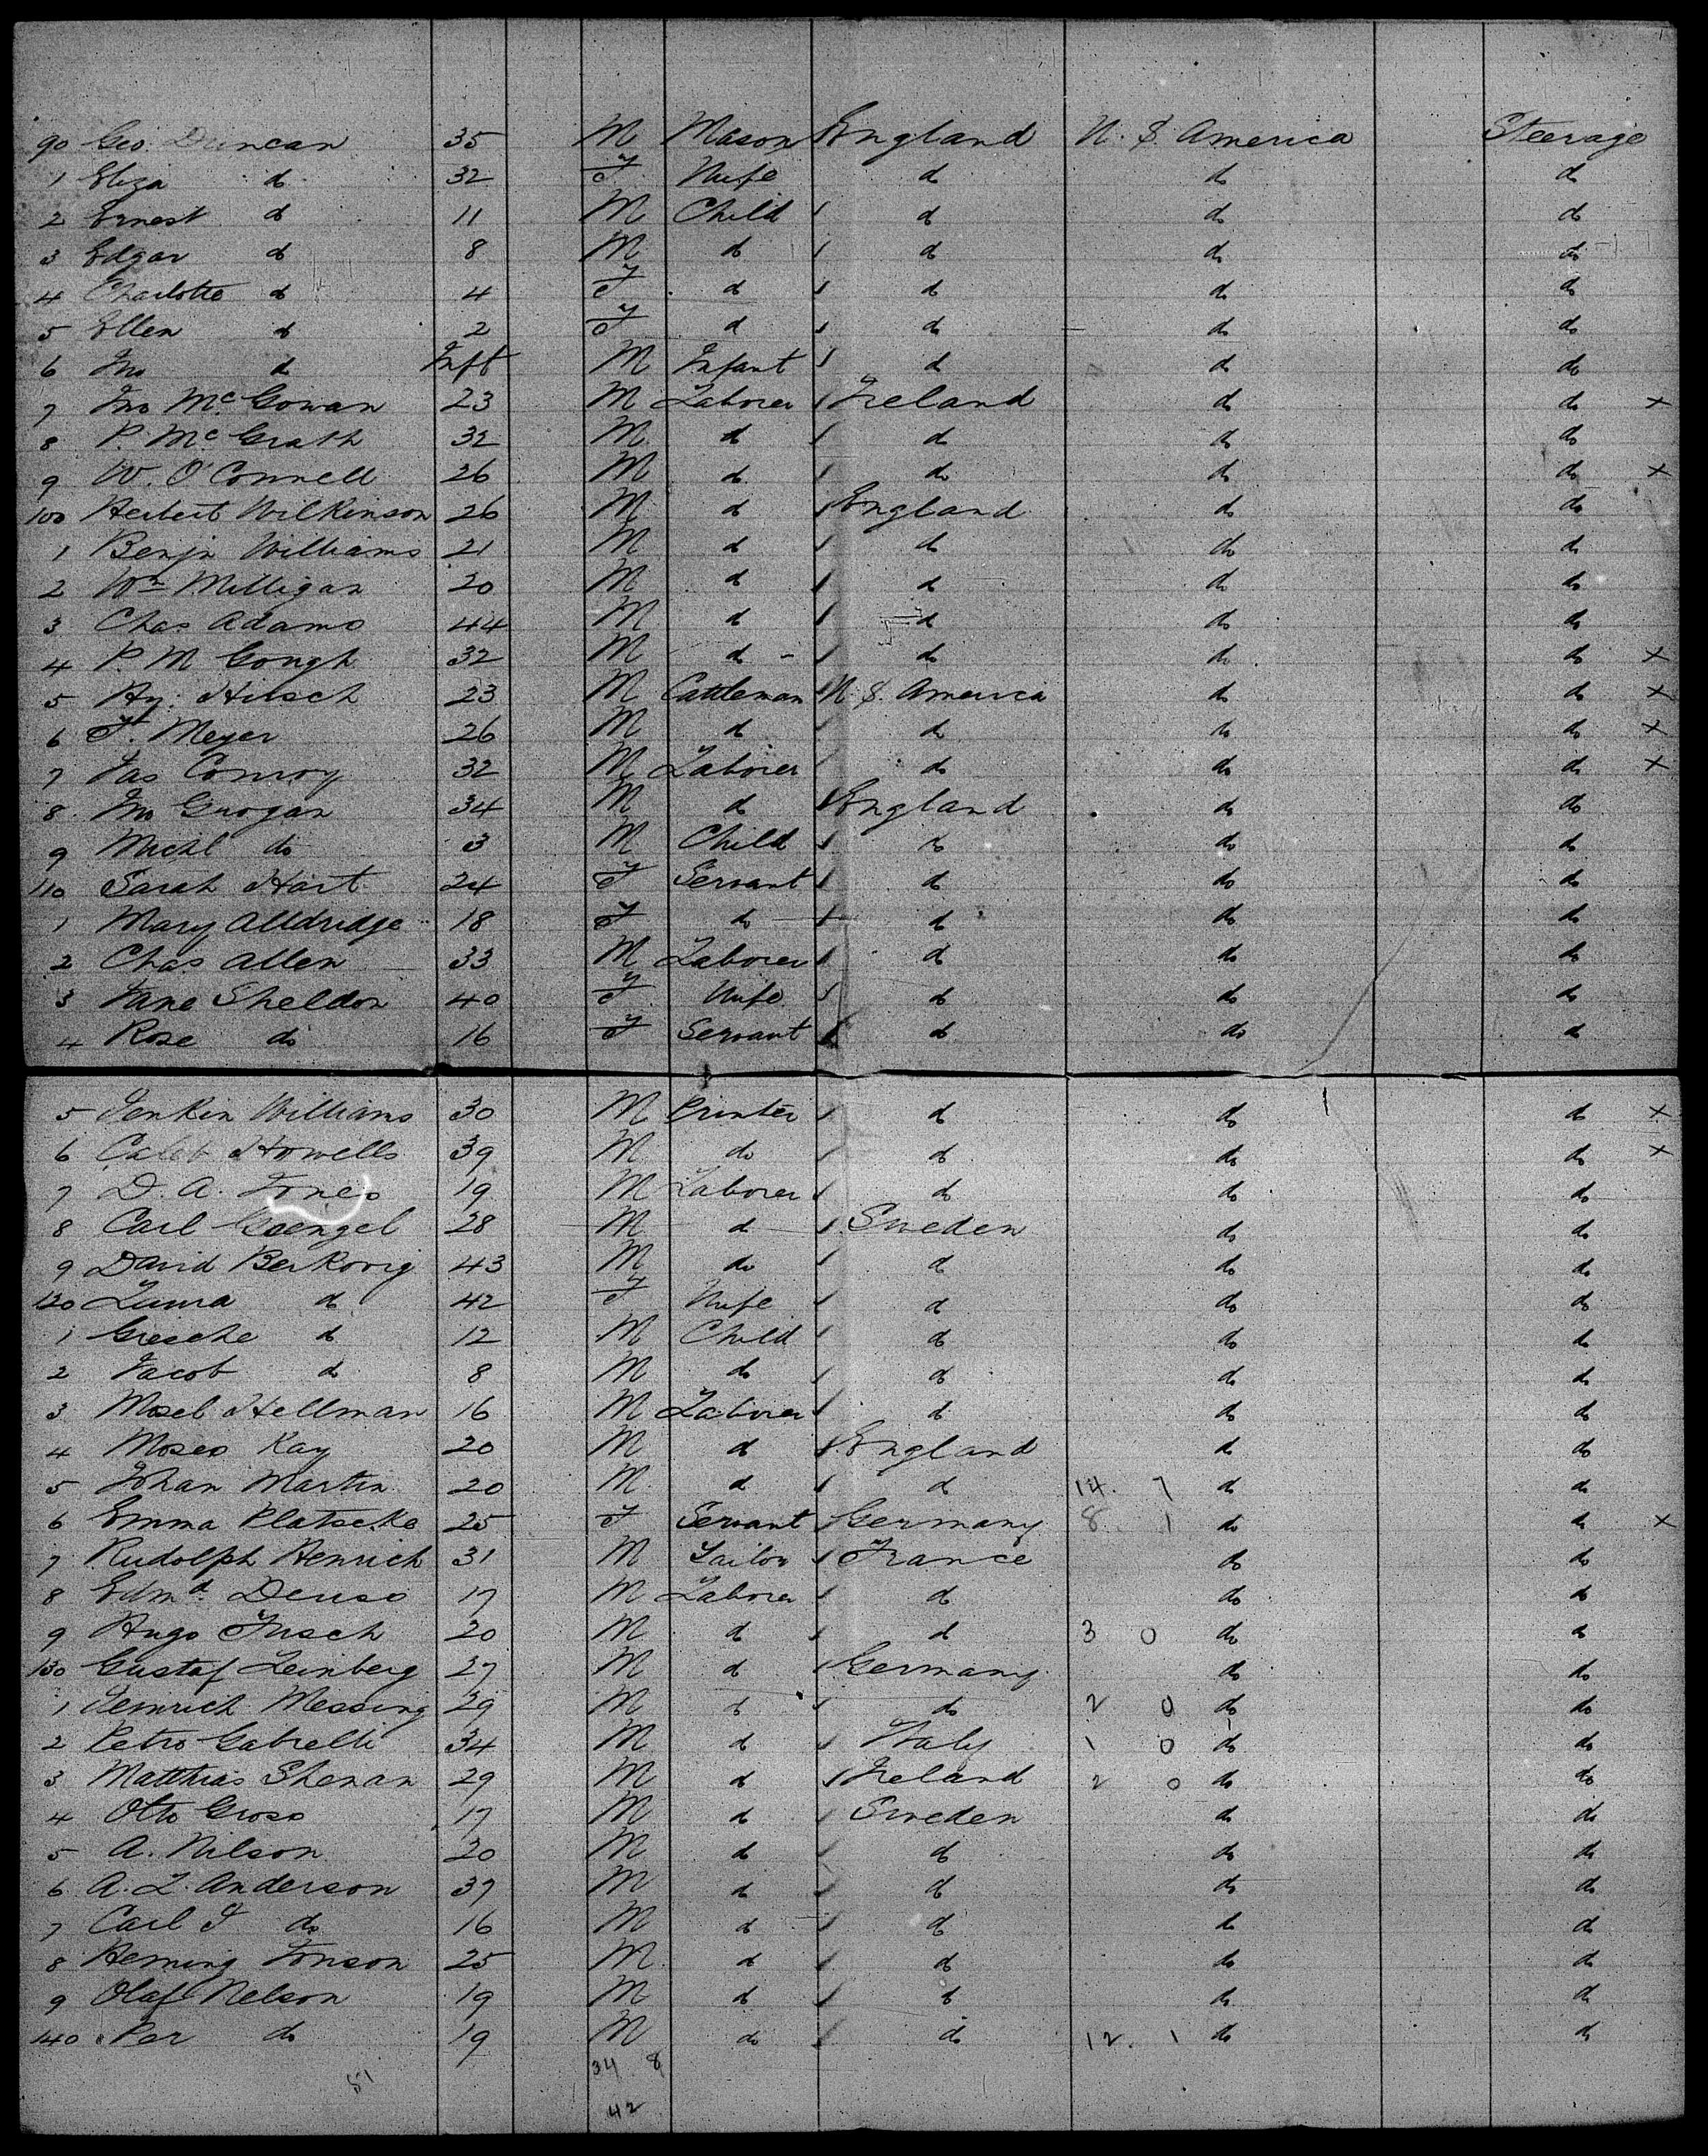 90 Geo. Duncan 35 M Mason England U. S. America Steerage
1 Eliza do 32 F Wife do do do
2 Ernest do 11 M Child do do do
3 Edgar do 8 M do do do do
4 Charlotte do 4 F do do do do
5 Ellen do 2 F do do do do
6 Jno do Inft M Infant do do do
7 Jno McGowan 23 M Laborer Ireland do do x
8 P. McGrath 32 M do do do do
9 W. O'Connell 26 M do do do do x
100 Herbert Wilkinson 26 M do England do do
1 Benjn Williams 21 M do do do do
2 Wm Milligan 20 M do do do do
3 Chas. Adams 44 M do do do do
4 P. M Gough 32 M do do do do x
5 Hy. Hirsch 23 M Cattleman U. S. America do do x
6 F. Meyer 26 M do do do do x
7 Jas Conroy 32 M Laborer do do do x
8 Jno Grogan 34 M do England do do
9 Michl do 3 M Child do do do
110 Sarah Hart 24 F Servant do do do
1 Mary Alldridge 18 F do do do do
2 Chas Allen 33 M Laborer do do do
3 Jane Sheldon 40 F Wife do do do
4 Rose do 16 F Servant do do do
5 Jenkin Williams 30 M Printer do do do x
6 Caleb Howells 39 M do do do do x
7 D. A. Jones 19 M Laborer do do do
8 Carl 28 M do Sweden do do
9 David Berkovig 43 M do do do do
120 do 42 F Wife do do do
1 Giesche do 12 M Child do do do
2 Jacob do 8 M do do do do
3 Mosel Hellman 16 M Laborer do do do
4 Moses Kay 20 M do England do do
5 Johan Martin 20 M do do 14. 7 do do
6 Emma Platscke 25 F Servant Germany 8. 1 do do x
7 Rudolph Henrich 31 M Tailor France do do
8 Edmd. 17 M Laborer do do do
9 Hugo 20 M do do 3 0 do do
130 Gustaf Leinberg 27 M do Germany do do
1 Heinrich Messing 29 M do do 2 0 do do
2 Petro Gabrelli 34 M do Italy 1 0 do do
3 Matthias Shenan 29 M do Ireland 2 0 do do
4 Otto Gross 17 M do Sweden do do
5 A. Nilson 20 M do do do do
6 A. L. Anderson 37 M do do do do
7 Carl F do 16 M do do do do
8 Heming Jonson 25 M do do do do
9 Olaf Nelson 19 M do do do do
140 Per do 19 M do do 12. 1 do do
34. 8
51
42